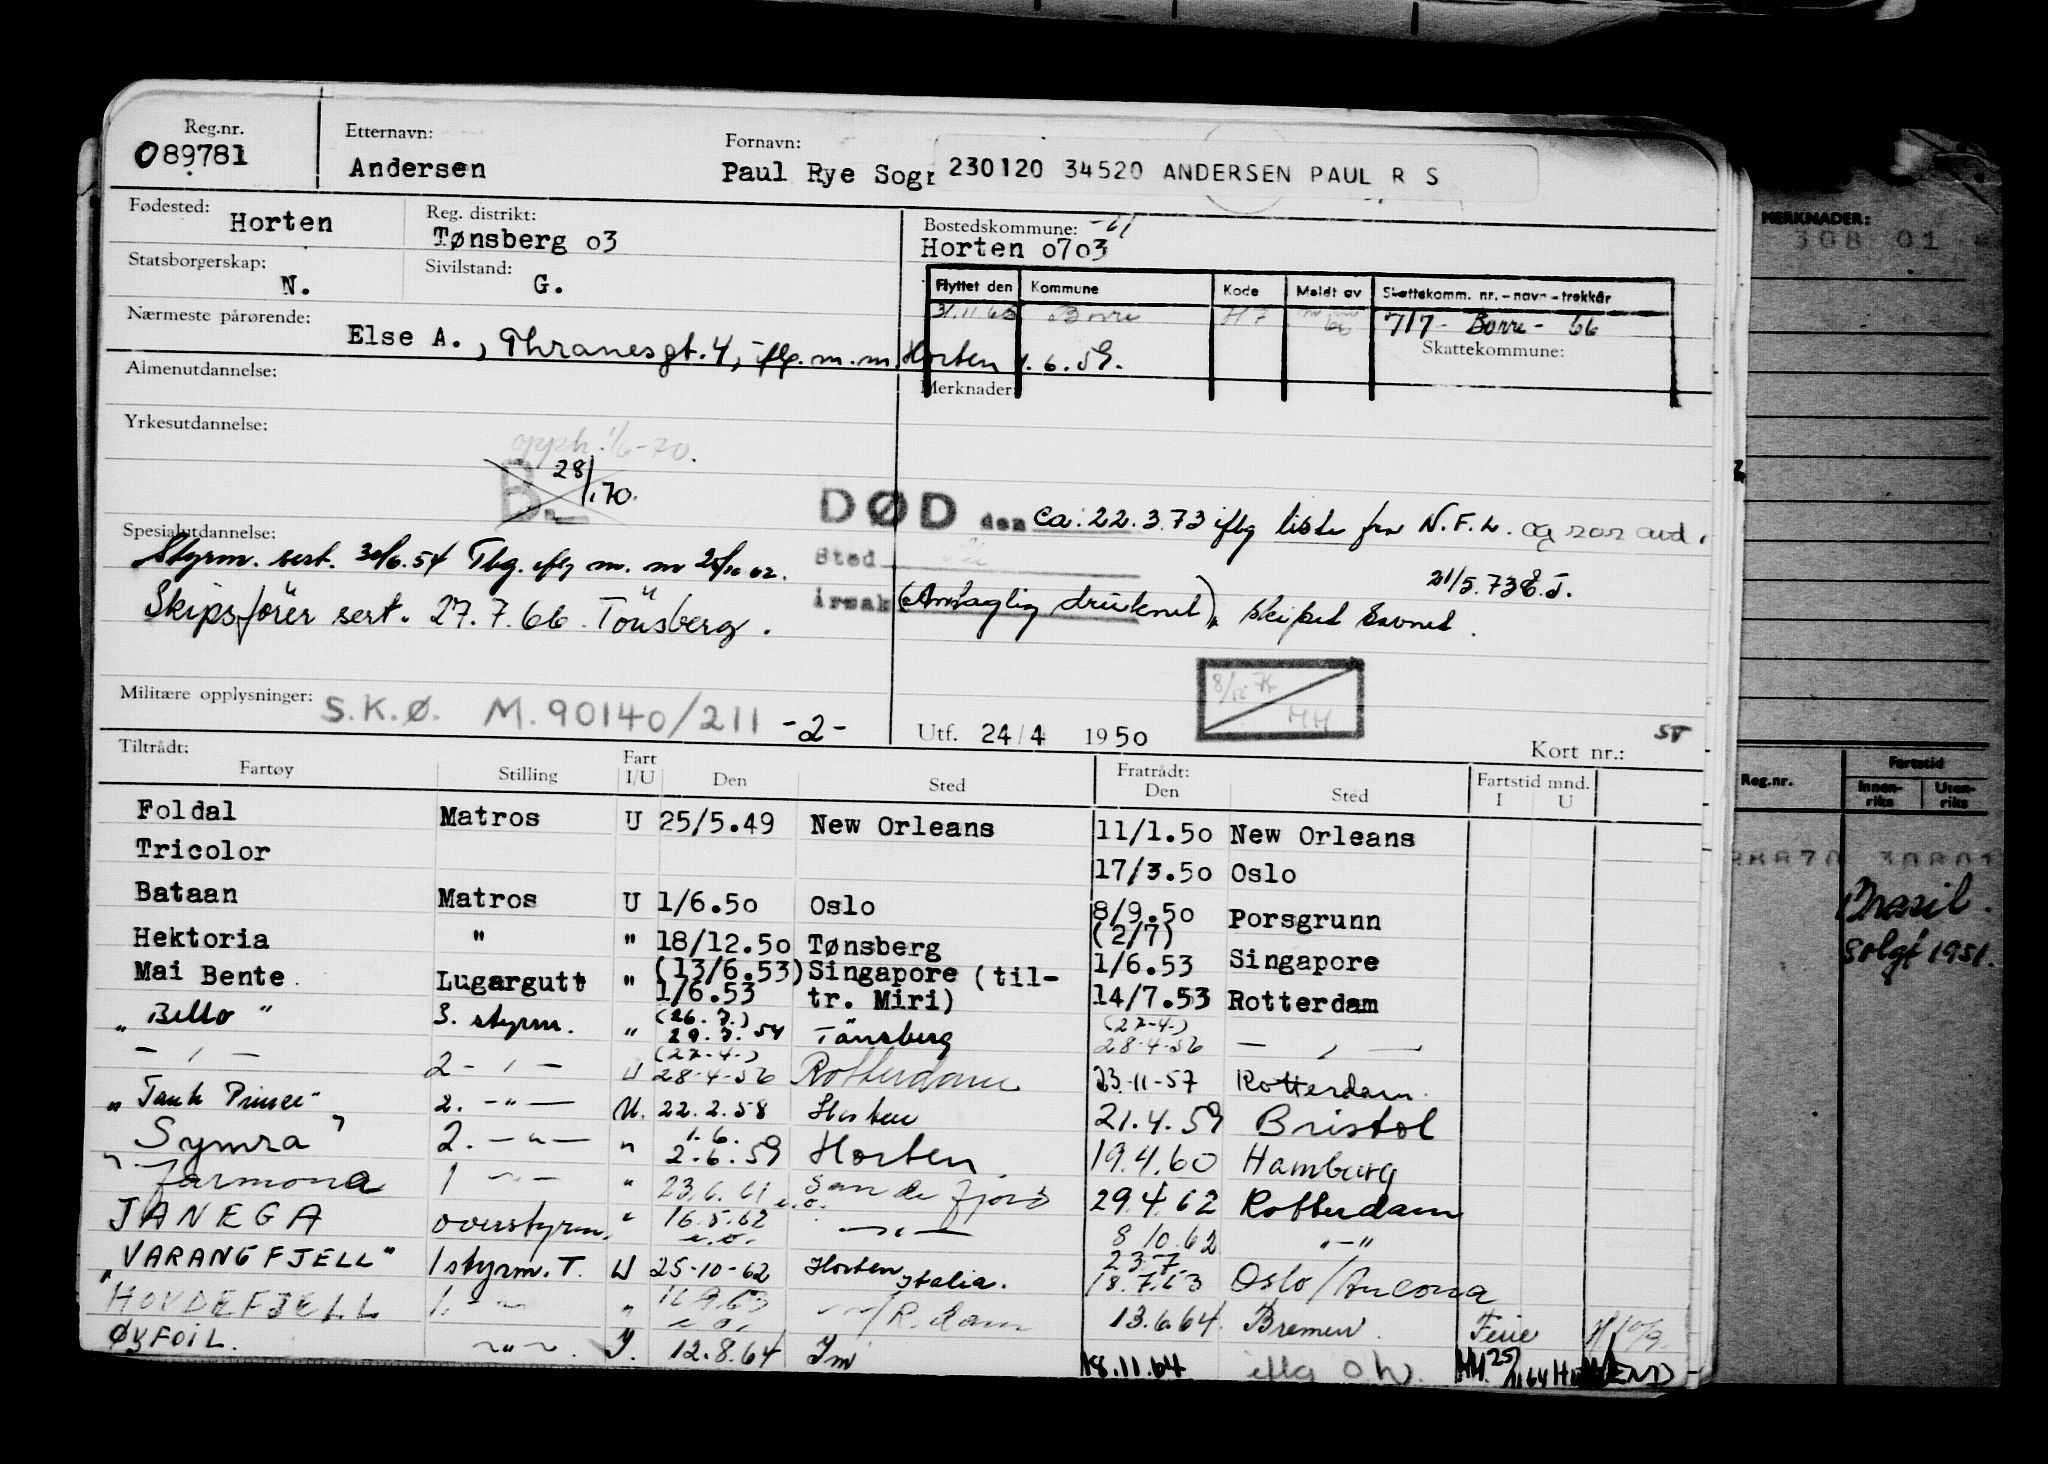 Reg.nr.
089781
Etternavn:
Andersen
Fornavn:
Paul Rye Sogr
230120 34520 ANDERSEN PAUL R S
Fødested:
Horten
Reg. distrikt:
Tønsberg o3
Bostedskommune: -61
Horten o7o3
Statsborgerskap:
N.
Sivilstand:
G.
Flyttet den Kommune Kode Meldt av Skattekomm. nr.-navn-trekkår
Borre 717 - Borre - 66
Skattekommune:
Nærmeste pårørende:
Else A., Thranesgt. 4, iflg. m.m. Horten 1.6.59.
Almenutdannelse:
Merknader:
Yrkesutdannelse:
opph. 1/6-70.
B. 28/1.70.
DØD den ca. 22.3.73 iflg liste fra N.F.L. og avd.
Sted
årsak (Antagelig druknet), skipet savnet.
21/5.73 E.J.
Spesialutdannelse:
Styrm. sert. 30/6.54 Tbg. iflg m.m
Skipsfører sert. 27.7.66 Tönsberg.
Militære opplysninger:
S.K.Ø. M.90140/211 -2-
Utf. 24/4 1950
Kort nr.:
Tiltrådt:
Fartøy Stilling Fart I/U Den Sted Fratrådt: Den Sted Fartstid mnd. I U
Foldal Matros U 25/5.49 New Orleans 11/1.5o New Orleans
Tricolor 17/3.5o Oslo
Bataan Matros U 1/6.5o Oslo 8/9.5o Porsgrunn
Hektoria " " 18/12.5o Tønsberg (2/7) 1/6.53 Singapore
Mai Bente Lugargutt " (13/6.53) 1/6.53 Singapore (til-tr. Miri) 14/7.53 Rotterdam
"Bello" 3. styrm. " (26.7.) 29.7.54 Tönsberg (27-4-) 28-4-56 — , —
— , — 2- , - U (27-4-) 28-4-56 Rotterdam 23-11-57 Rotterdam.
"Tank Prince" 2. -"- U. 22.2.58 Horten 21.4.59 Bristol
Symra 2. -"- " 1.6. 2.6.59 Horten. 19.4.60 Hamburg
"Jarmona 1 -"- " 23.6.61 Sandefjord 29.4.62 Rotterdam
JANEGA overstyrm. " 16.5.62 e.o. —"— 8/10.62 "-"
"VARANGFJELL" 1 styrm. T. U 25-10-62 Horten Italia. 23.7. 18.7.63 Oslo/Ancona
"HOVDEFJELL 1. -"- " e.o. /R.dam 13.6.64. Bremen. Ferie
ØYFOIL. -"-. I. 12.8.64 Im 18.11.64 iflg O.W.
MERKNADER:
308 01
Reg.nr.
Fartstid
Innen-riks
Uten-riks
Brasil.
solgt 1951.